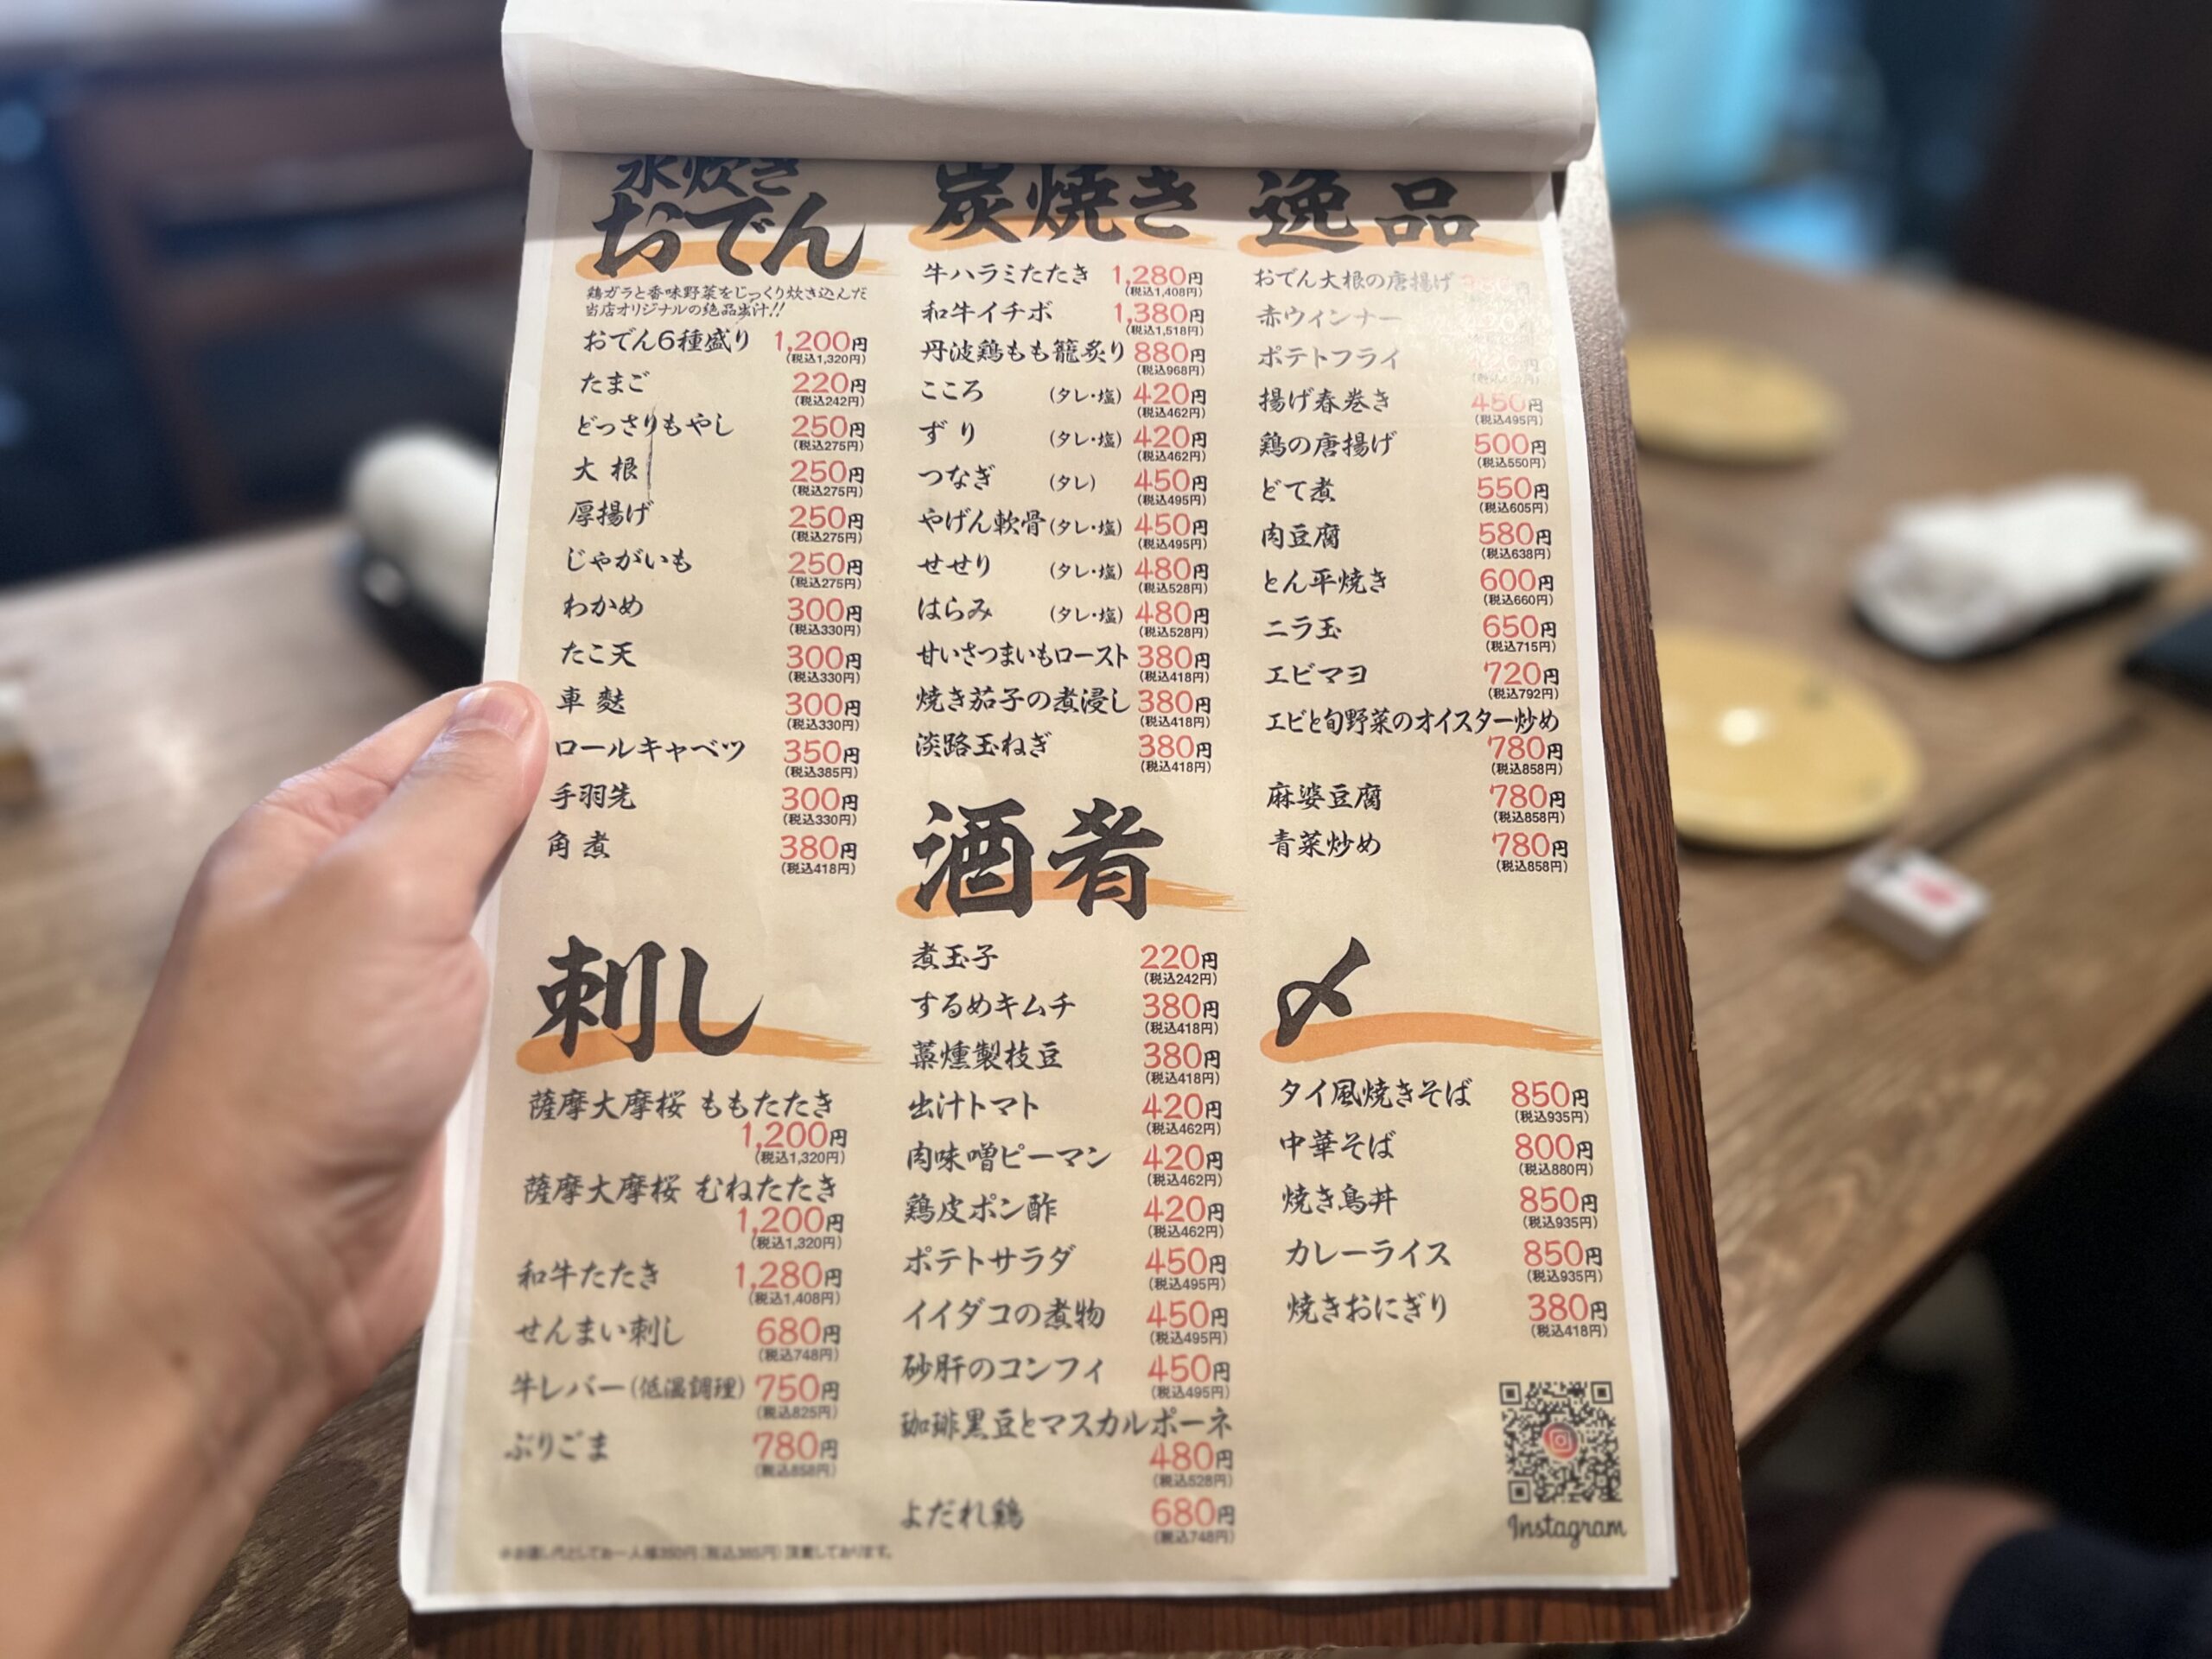 水炊き
おでん
鶏ガラと香味野菜をじっくり炊き込んだ
当店オリジナルの絶品出汁!!
おでん6種盛り 1,200円
(税込1,320円)
たまご 220円
(税込242円)
どっさりもやし 250円
(税込275円)
大根 250円
(税込275円)
厚揚げ 250円
(税込275円)
じゃがいも 250円
(税込275円)
わかめ 300円
(税込330円)
たこ天 300円
(税込330円)
車麩 300円
(税込330円)
ロールキャベツ 350円
(税込385円)
手羽先 300円
(税込330円)
角煮 380円
(税込418円)
刺し
薩摩大摩桜 ももたたき
1,200円
(税込1,320円)
薩摩大摩桜 むねたたき
1,200円
(税込1,320円)
和牛たたき 1,280円
(税込1,408円)
せんまい刺し 680円
(税込748円)
牛レバー(低温調理) 750円
(税込825円)
ぶりごま 780円
(税込858円)
※お通し代としてお一人様350円(税込385円)頂戴しております。
炭焼き
牛ハラミたたき 1,280円
(税込1,408円)
和牛イチボ 1,380円
(税込1,518円)
丹波鶏もも籠炙り 880円
(税込968円)
こころ (タレ・塩) 420円
(税込462円)
ずり (タレ・塩) 420円
(税込462円)
つなぎ (タレ) 450円
(税込495円)
やげん軟骨(タレ・塩) 450円
(税込495円)
せせり (タレ・塩) 480円
(税込528円)
はらみ (タレ・塩) 480円
(税込528円)
甘いさつまいもロースト 380円
(税込418円)
焼き茄子の煮浸し 380円
(税込418円)
淡路玉ねぎ 380円
(税込418円)
酒肴
煮玉子 220円
(税込242円)
するめキムチ 380円
(税込418円)
藁燻製枝豆 380円
(税込418円)
出汁トマト 420円
(税込462円)
肉味噌ピーマン 420円
(税込462円)
鶏皮ポン酢 420円
(税込462円)
ポテトサラダ 450円
(税込495円)
イイダコの煮物 450円
(税込495円)
砂肝のコンフィ 450円
(税込495円)
珈琲黒豆とマスカルポーネ
480円
(税込528円)
よだれ鶏 680円
(税込748円)
逸品
おでん大根の唐揚げ
赤ウィンナー
ポテトフライ
揚げ春巻き 450円
(税込495円)
鶏の唐揚げ 500円
(税込550円)
どて煮 550円
(税込605円)
肉豆腐 580円
(税込638円)
とん平焼き 600円
(税込660円)
ニラ玉 650円
(税込715円)
エビマヨ 720円
(税込792円)
エビと旬野菜のオイスター炒め
780円
(税込858円)
麻婆豆腐 780円
(税込858円)
青菜炒め 780円
(税込858円)
〆
タイ風焼きそば 850円
(税込935円)
中華そば 800円
(税込880円)
焼き鳥丼 850円
(税込935円)
カレーライス 850円
(税込935円)
焼きおにぎり 380円
(税込418円)
Instagram